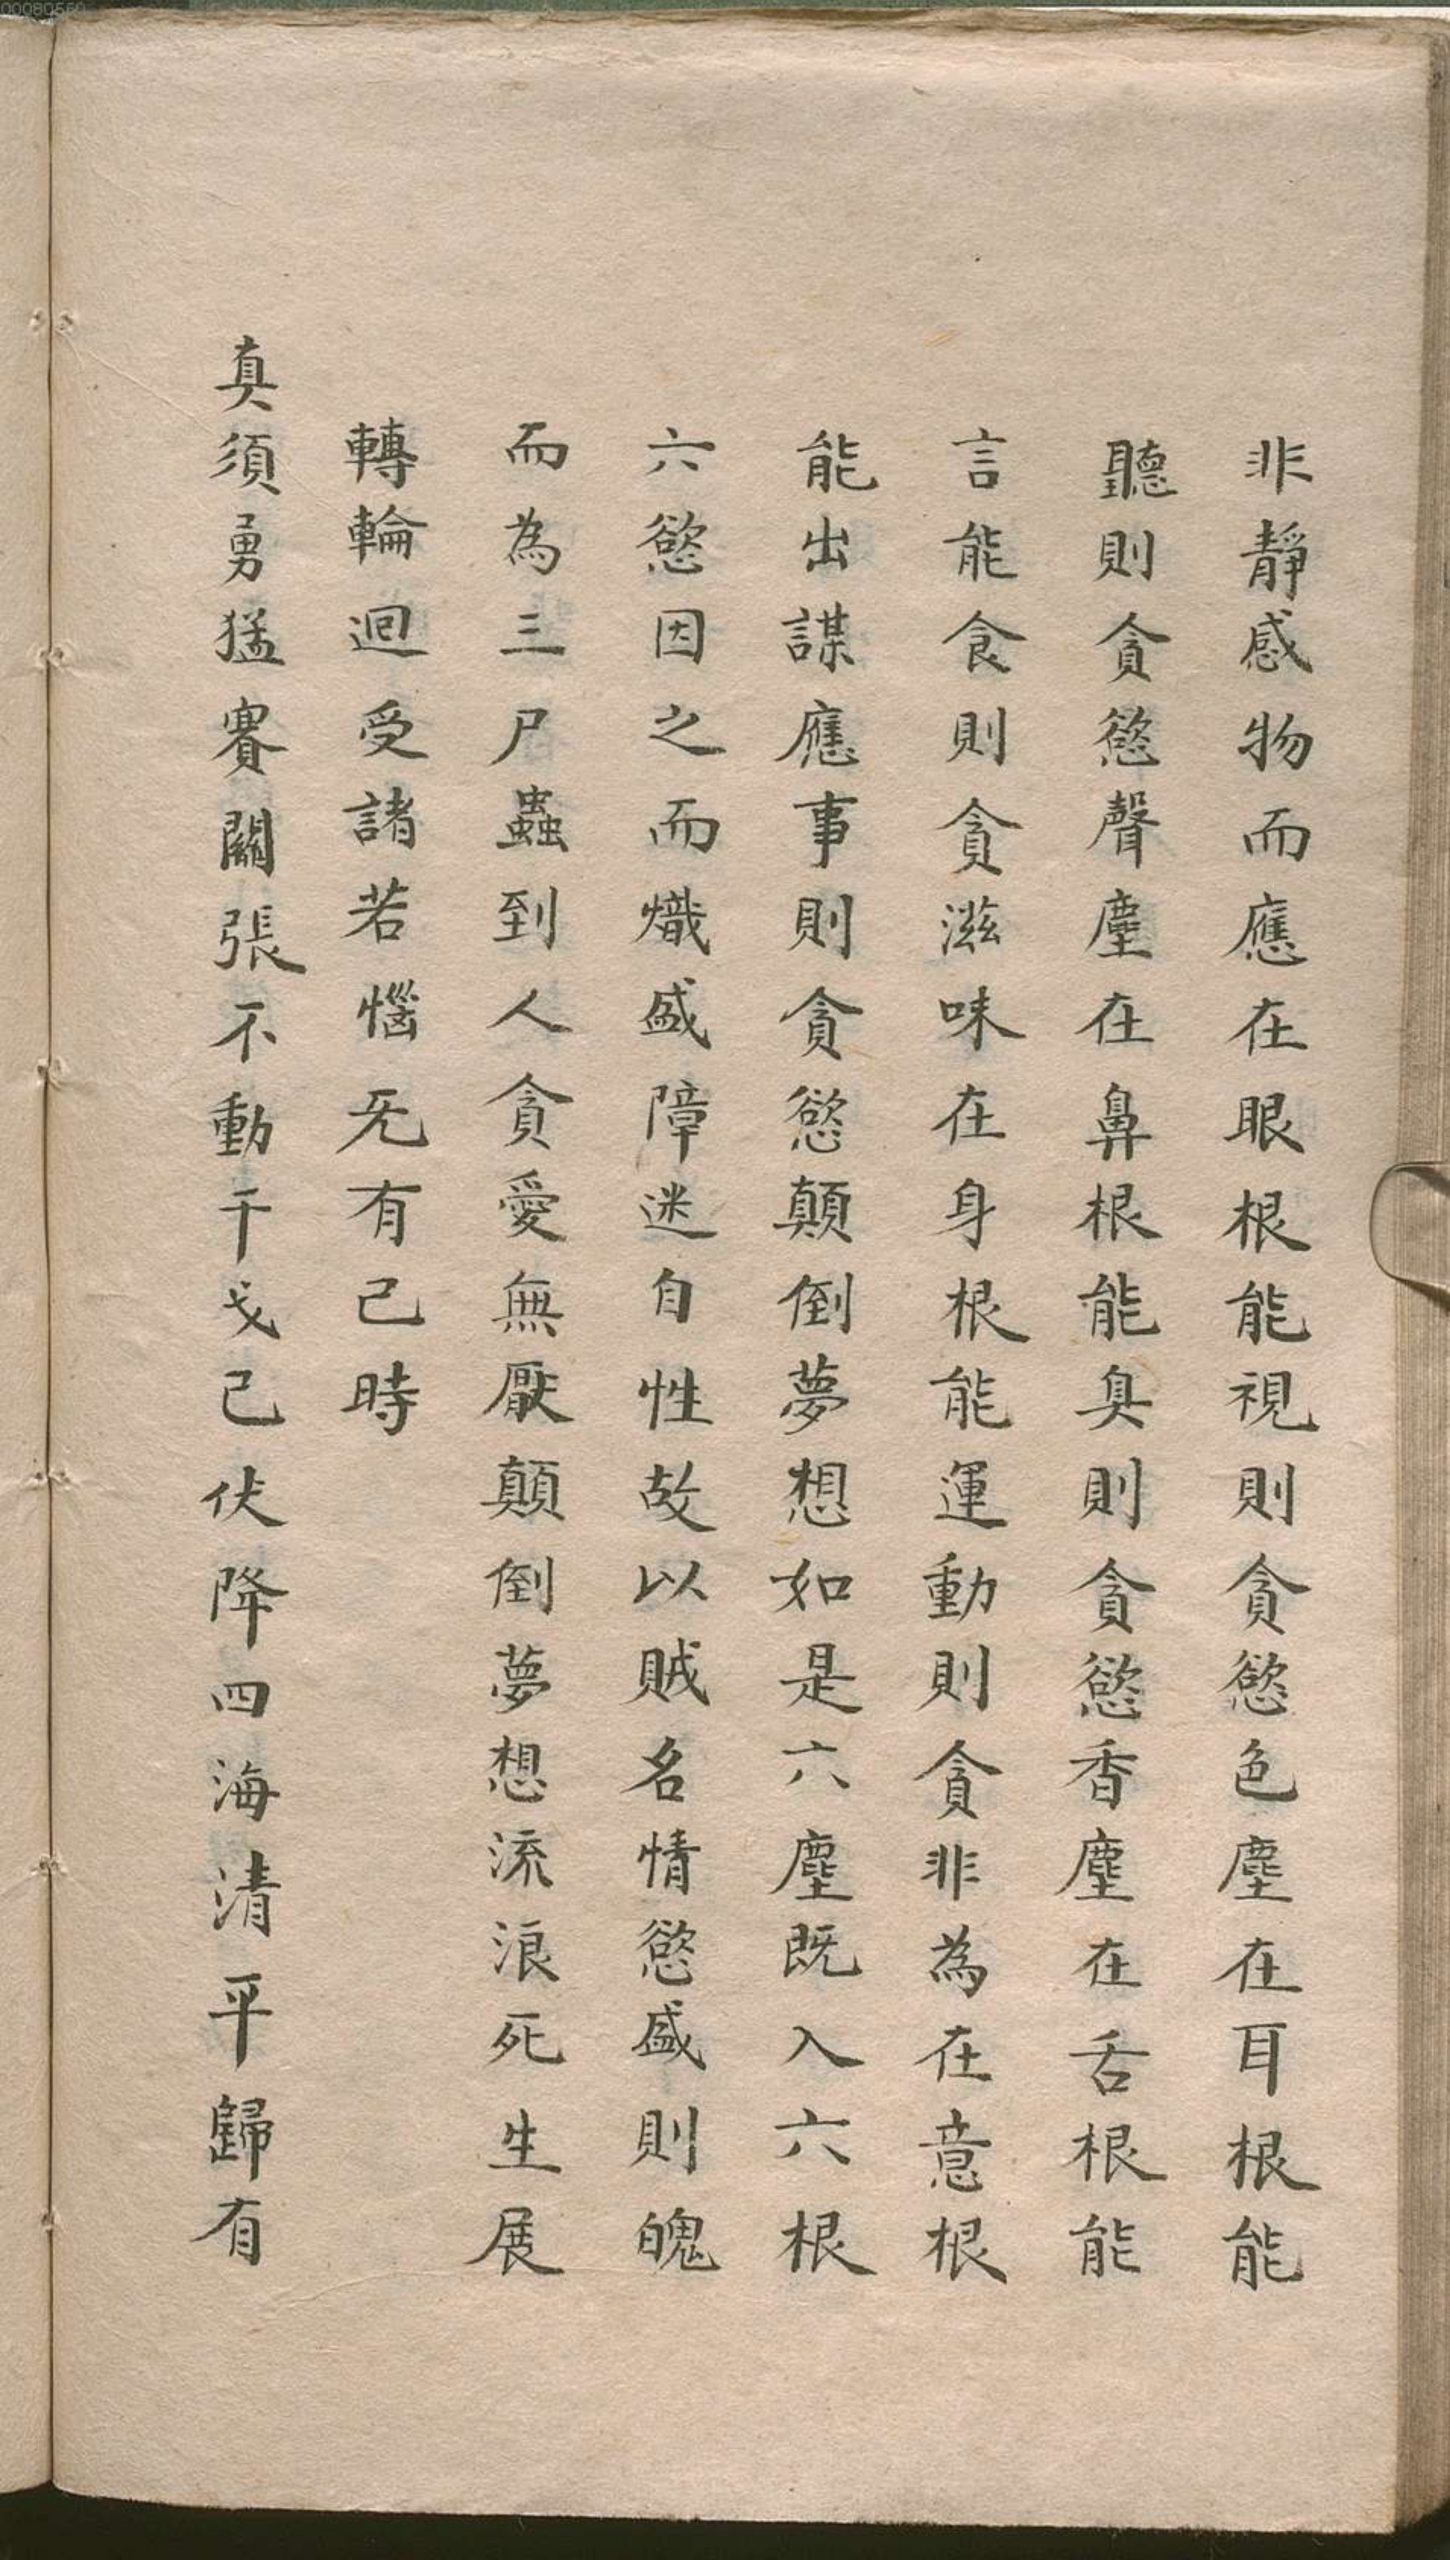 00080560
非靜感物而應在眼根能視則貪慾色塵在耳根能
聽則貪慾聲塵在鼻根能臭則貪慾香塵在舌根能
言能食則貪滋味在身根能運動則貪非為在意根
能出謀應事則貪慾顛倒夢想如是六塵既入六根
六慾因之而熾盛障迷自性故以賊名情慾盛則魄
而為三尸蟲到人貪愛無厭顛倒夢想流浪死生展
轉輪迴受諸若惱旡有已時
真須勇猛賽關張不動干戈已伏降四海清平歸有